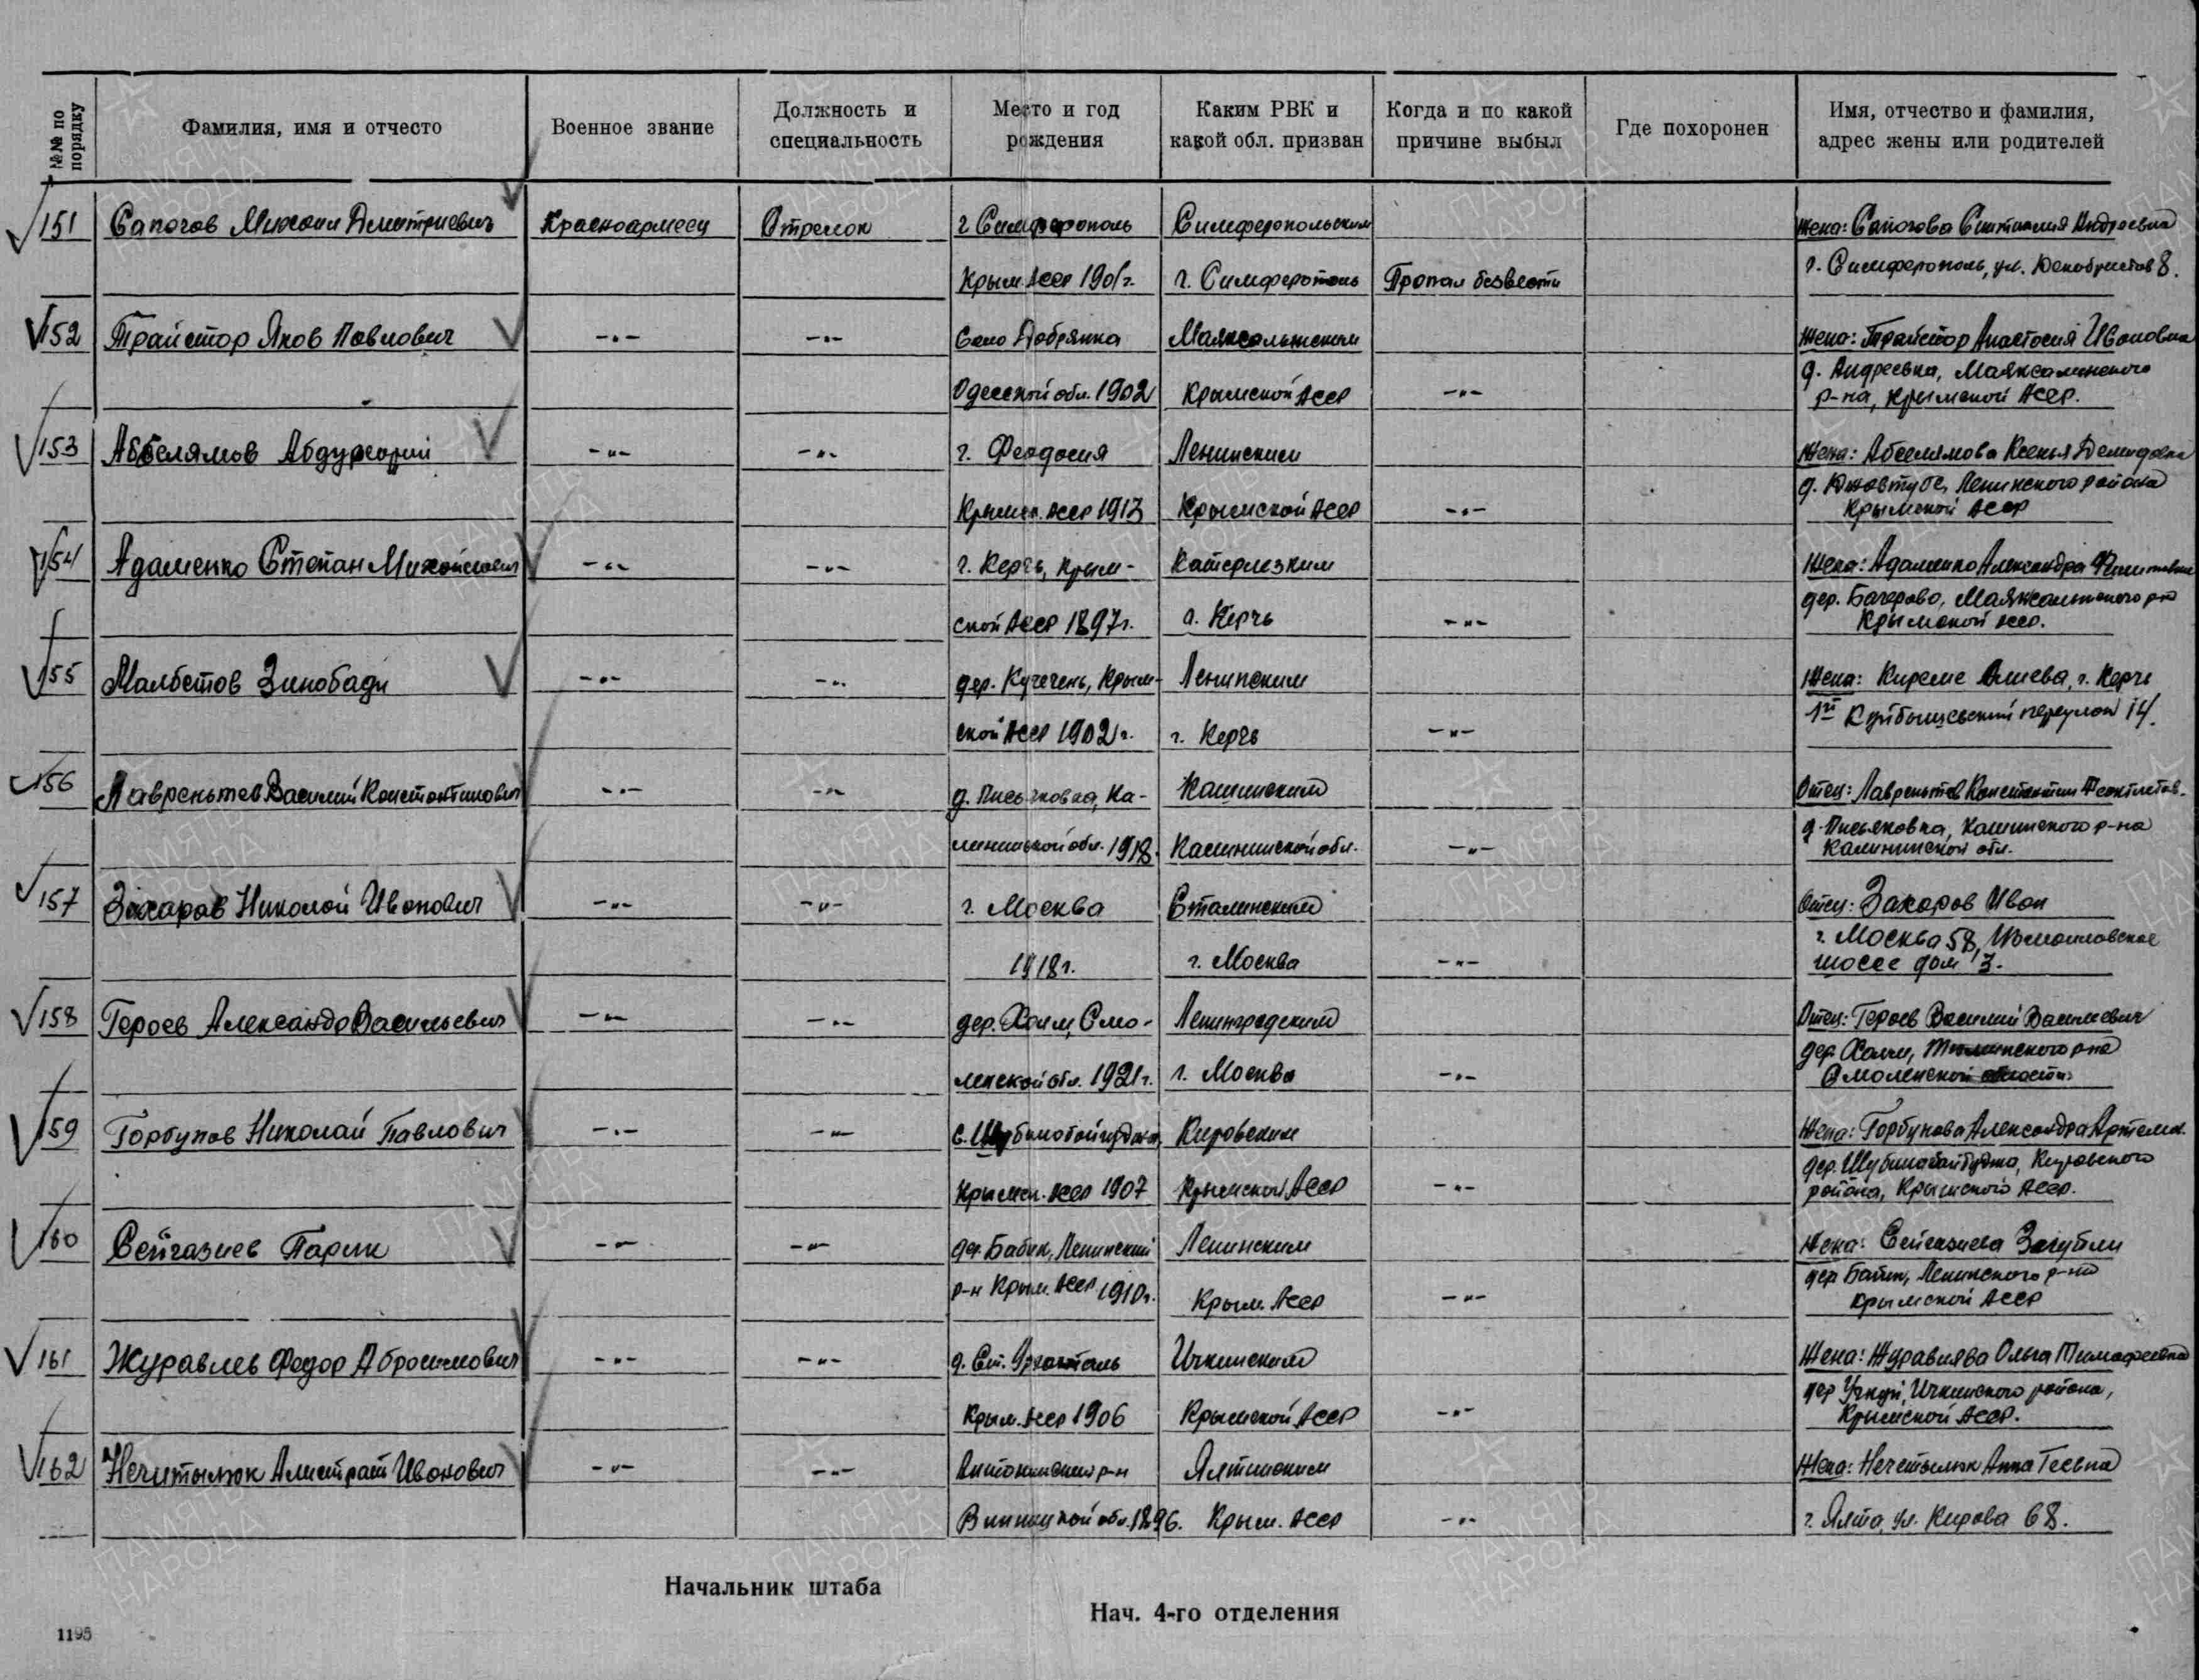 №№ по порядку
Фамилия, имя и отчесто
Военное звание
Должность и специальность
Место и год рождения
Каким РВК и какой обл. призван
Когда и по какой причине выбыл
Где похоронен
Имя, отчество и фамилия, адрес жены или родителей
151 Сапогов Михаил Дмитриевич Красноармеец Стрелок г. Симферополь Симферопольским Жена: Сапогова Андреевна
Крым АССР 1901г. г. Симферополь Пропал безвести г. Симферополь, ул. Декабристов 8.
152 Трайстор Яков Павлович -"- -"- Село Добрянка Маяксальнским Жена: Трайстор Анастасия Ивановна
д. Андреевка, Маяксалинского
Одесской обл. 1902 Крымской АССР -"- р-на, Крымской АССР.
153 Аббелямов -"- -"- г. Феодосия Ленинским Жена: Абселямова Ксенья Демидовна
д. Ленинского района
Крымск. АССР 1913 Крымской АССР -"- Крымской АССР
154 Адаменко Степан Михайлович -"- -"- г. Керчь, Крым- Катерлезким Жена: Адаменко Александра
дер. Багерово, Маяксальнского р-на
ской АССР 1897г. г. Керчь -"- Крымской АССР.
155 Малбетов Зинобади -"- -"- дер. Кучегень, Крым- Ленинским Жена: Киреме Алиева, г. Керчь
1й Куйбышевский переулок 14.
ской АССР 1902г. г. Керчь -"-
156 Лаврентьев Василий Константинович -"- -"- д. Письяковка, Ка- Кашинским Отец: Лаврентьев Константин
д. Письяковка, Кашинского р-на
лининской обл. 1918. Калининской обл. -"- Калининской обл.
157 Захаров Николай Иванович -"- -"- г. Москва Сталинским Отец: Захаров Иван
г. Москва 58, Измайловское
1918г. г. Москва -"- шоссе дом 13.
158 Героев Александр Васильевич -"- -"- дер. Холм, Смо- Ленинградским Отец: Героев Василий Васильевич
дер. Холм, р-на
ленской обл. 1921г. г. Москва -"- Смоленской области
159 Горбунов Николай Павлович -"- -"- Кировским Жена: Горбунова Александра Артемов.
дер. Кировского
Крымск. АССР 1907 Крымской АССР -"- района, Крымского АССР.
160 Сейгазиев Парик -"- -"- дер. Бабик, Ленинский Ленинским Жена: Сейгазиева
дер. Ленинского р-на
р-н Крым. АССР 1910г. Крым. АССР -"- Крымской АССР
161 Журавлев Федор Абросимович -"- -"- д. Ст. Ичкинским Жена: Журавлева Ольга Тимофеевна
дер Ичкинского района,
Крым. АССР 1906 Крымской АССР -"- Крымской АССР.
162 Нечитылюк Алистрат Иванович -"- -"- р-н Ялтинским Жена: Нечетылюк Анна
Винницкой обл. 1896. Крым. АССР -"- г. Ялта, ул. Кирова 68.
Начальник штаба
Нач. 4-го отделения
1195
ПАМЯТЬ НАРОДА